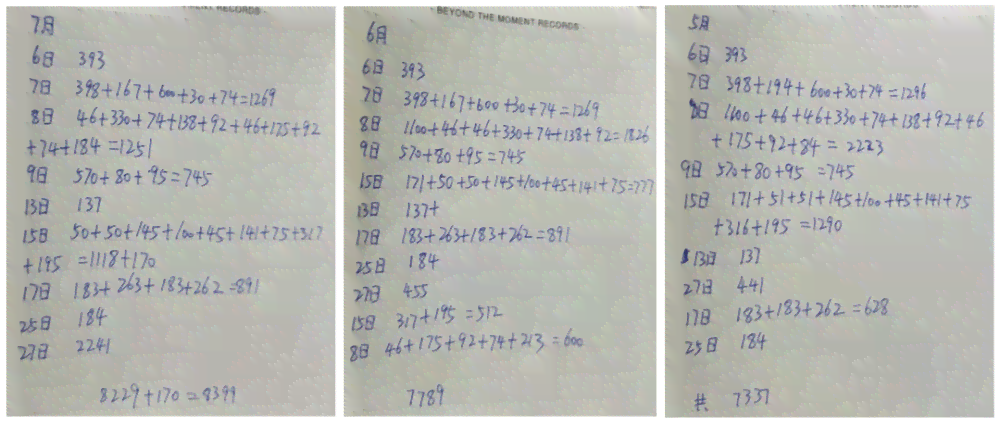 RECORDS
7月
6日 393
7日 398+167+600+30+74=1269
8日 46+330+74+138+92+46+175+92
+74+184=1251
9日 570+80+95=745
13日 137
15日 50+50+145+100+45+141+75+317
+195 =1118+170
17日 183+263+183+262=891
25日 184
27日 2241
8229+170=8399
BEYOND THE MOMENT RECORDS
6月
6日 393
7日 398+167+600+30+74=1269
8日 1100+46+46+330+74+138+92=1826
9日 570+80+95=745
15日 171+50+50+145+100+45+141+75=777
13日 137+
17日 183+263+183+262=891
25日 184
27日 455
15日 317+195=512
8日 46+175+92+74+213=600
7789
RECORDS
5月
6日 393
7日 398+194+600+30+74=1296
8日 1100+46+46+330+74+138+92+46
+175+92+84=2223
9日 570+80+95=745
15日 171+51+51+145+100+45+141+75
+316+195=1290
13日 137
27日 441
17日 183+183+262=628
25日 184
共 7337